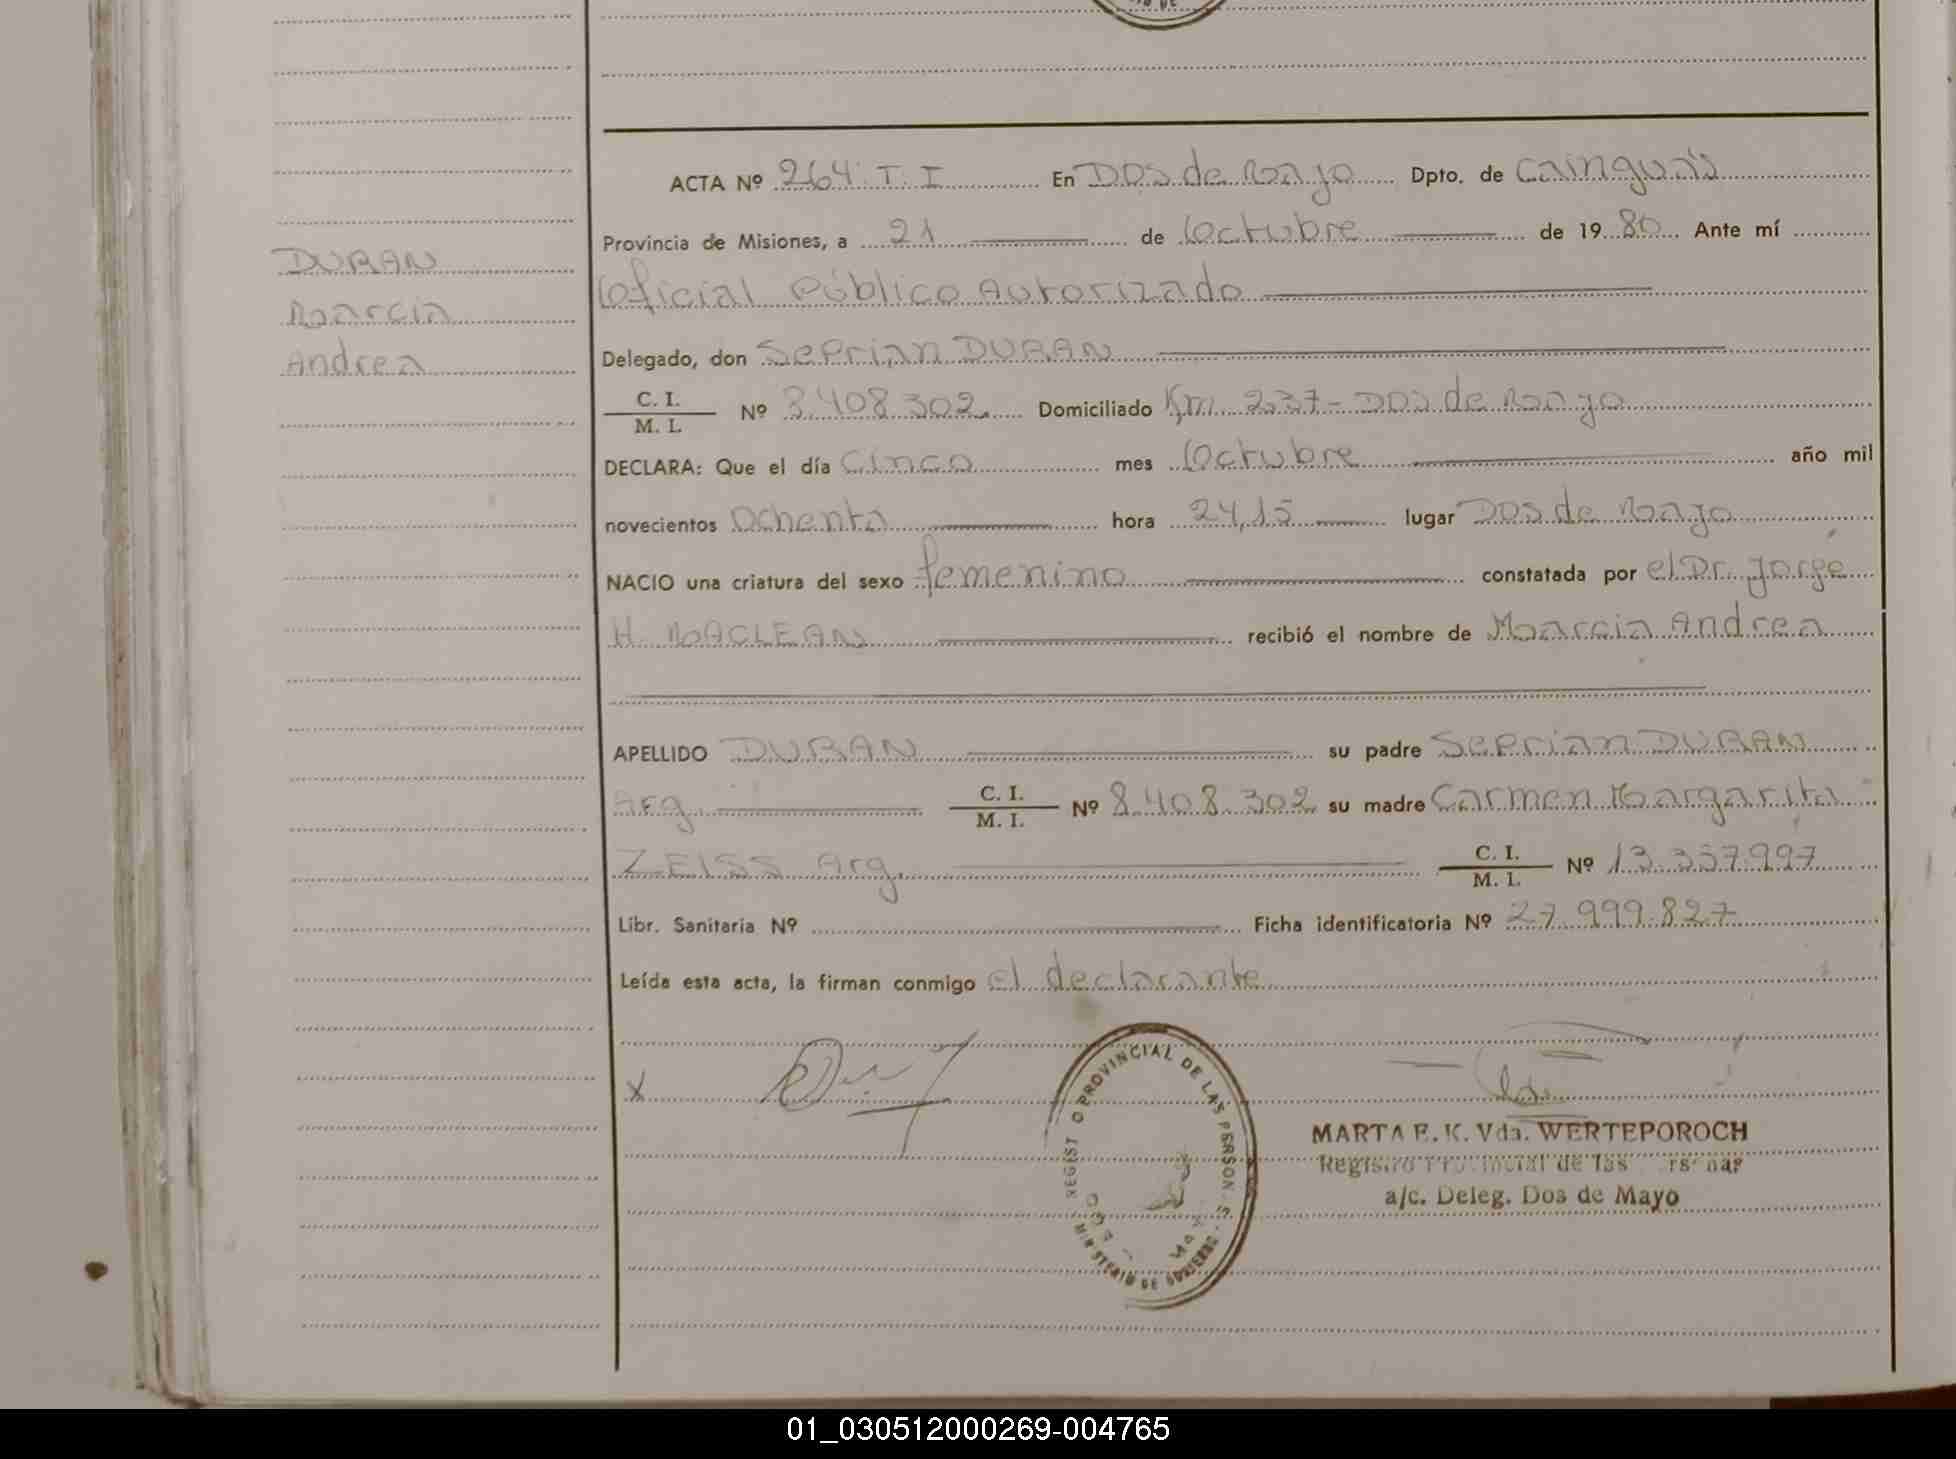 ACTA Nº 264 T. I En Dos de Mayo Dpto. de Cainguás
Provincia de Misiones, a 21 de Octubre de 1980 Ante mí
Oficial Público Autorizado
DURAN
Marcia
Andrea
Delegado, don Seprian DURAN
C. I.
M. I. Nº 8.408.302 Domiciliado Km 237 - Dos de Mayo
DECLARA: Que el día Cinco mes Octubre año mil
novecientos Ochenta hora 24,15 lugar Dos de Mayo
NACIO una criatura del sexo femenino constatada por el Dr. Jorge
H. MACLEAN recibió el nombre de Marcia Andrea
APELLIDO DURAN su padre Seprian DURAN
Arg. C. I. M. I. Nº 8.408.302 su madre Carmen Margarita
ZEISS Arg. C. I. M. I. Nº 13.357.997
Libr. Sanitaria Nº Ficha identificatoria Nº 27.999.827
Leída esta acta, la firman conmigo el declarante
X
MARTA E. K. Vda. WERTEPOROCH
Registro Provincial de las
a/c. Deleg. Dos de Mayo
PROVINCIAL DE LAS
MINISTERIO DE GOBIERNO
01_030512000269-004765